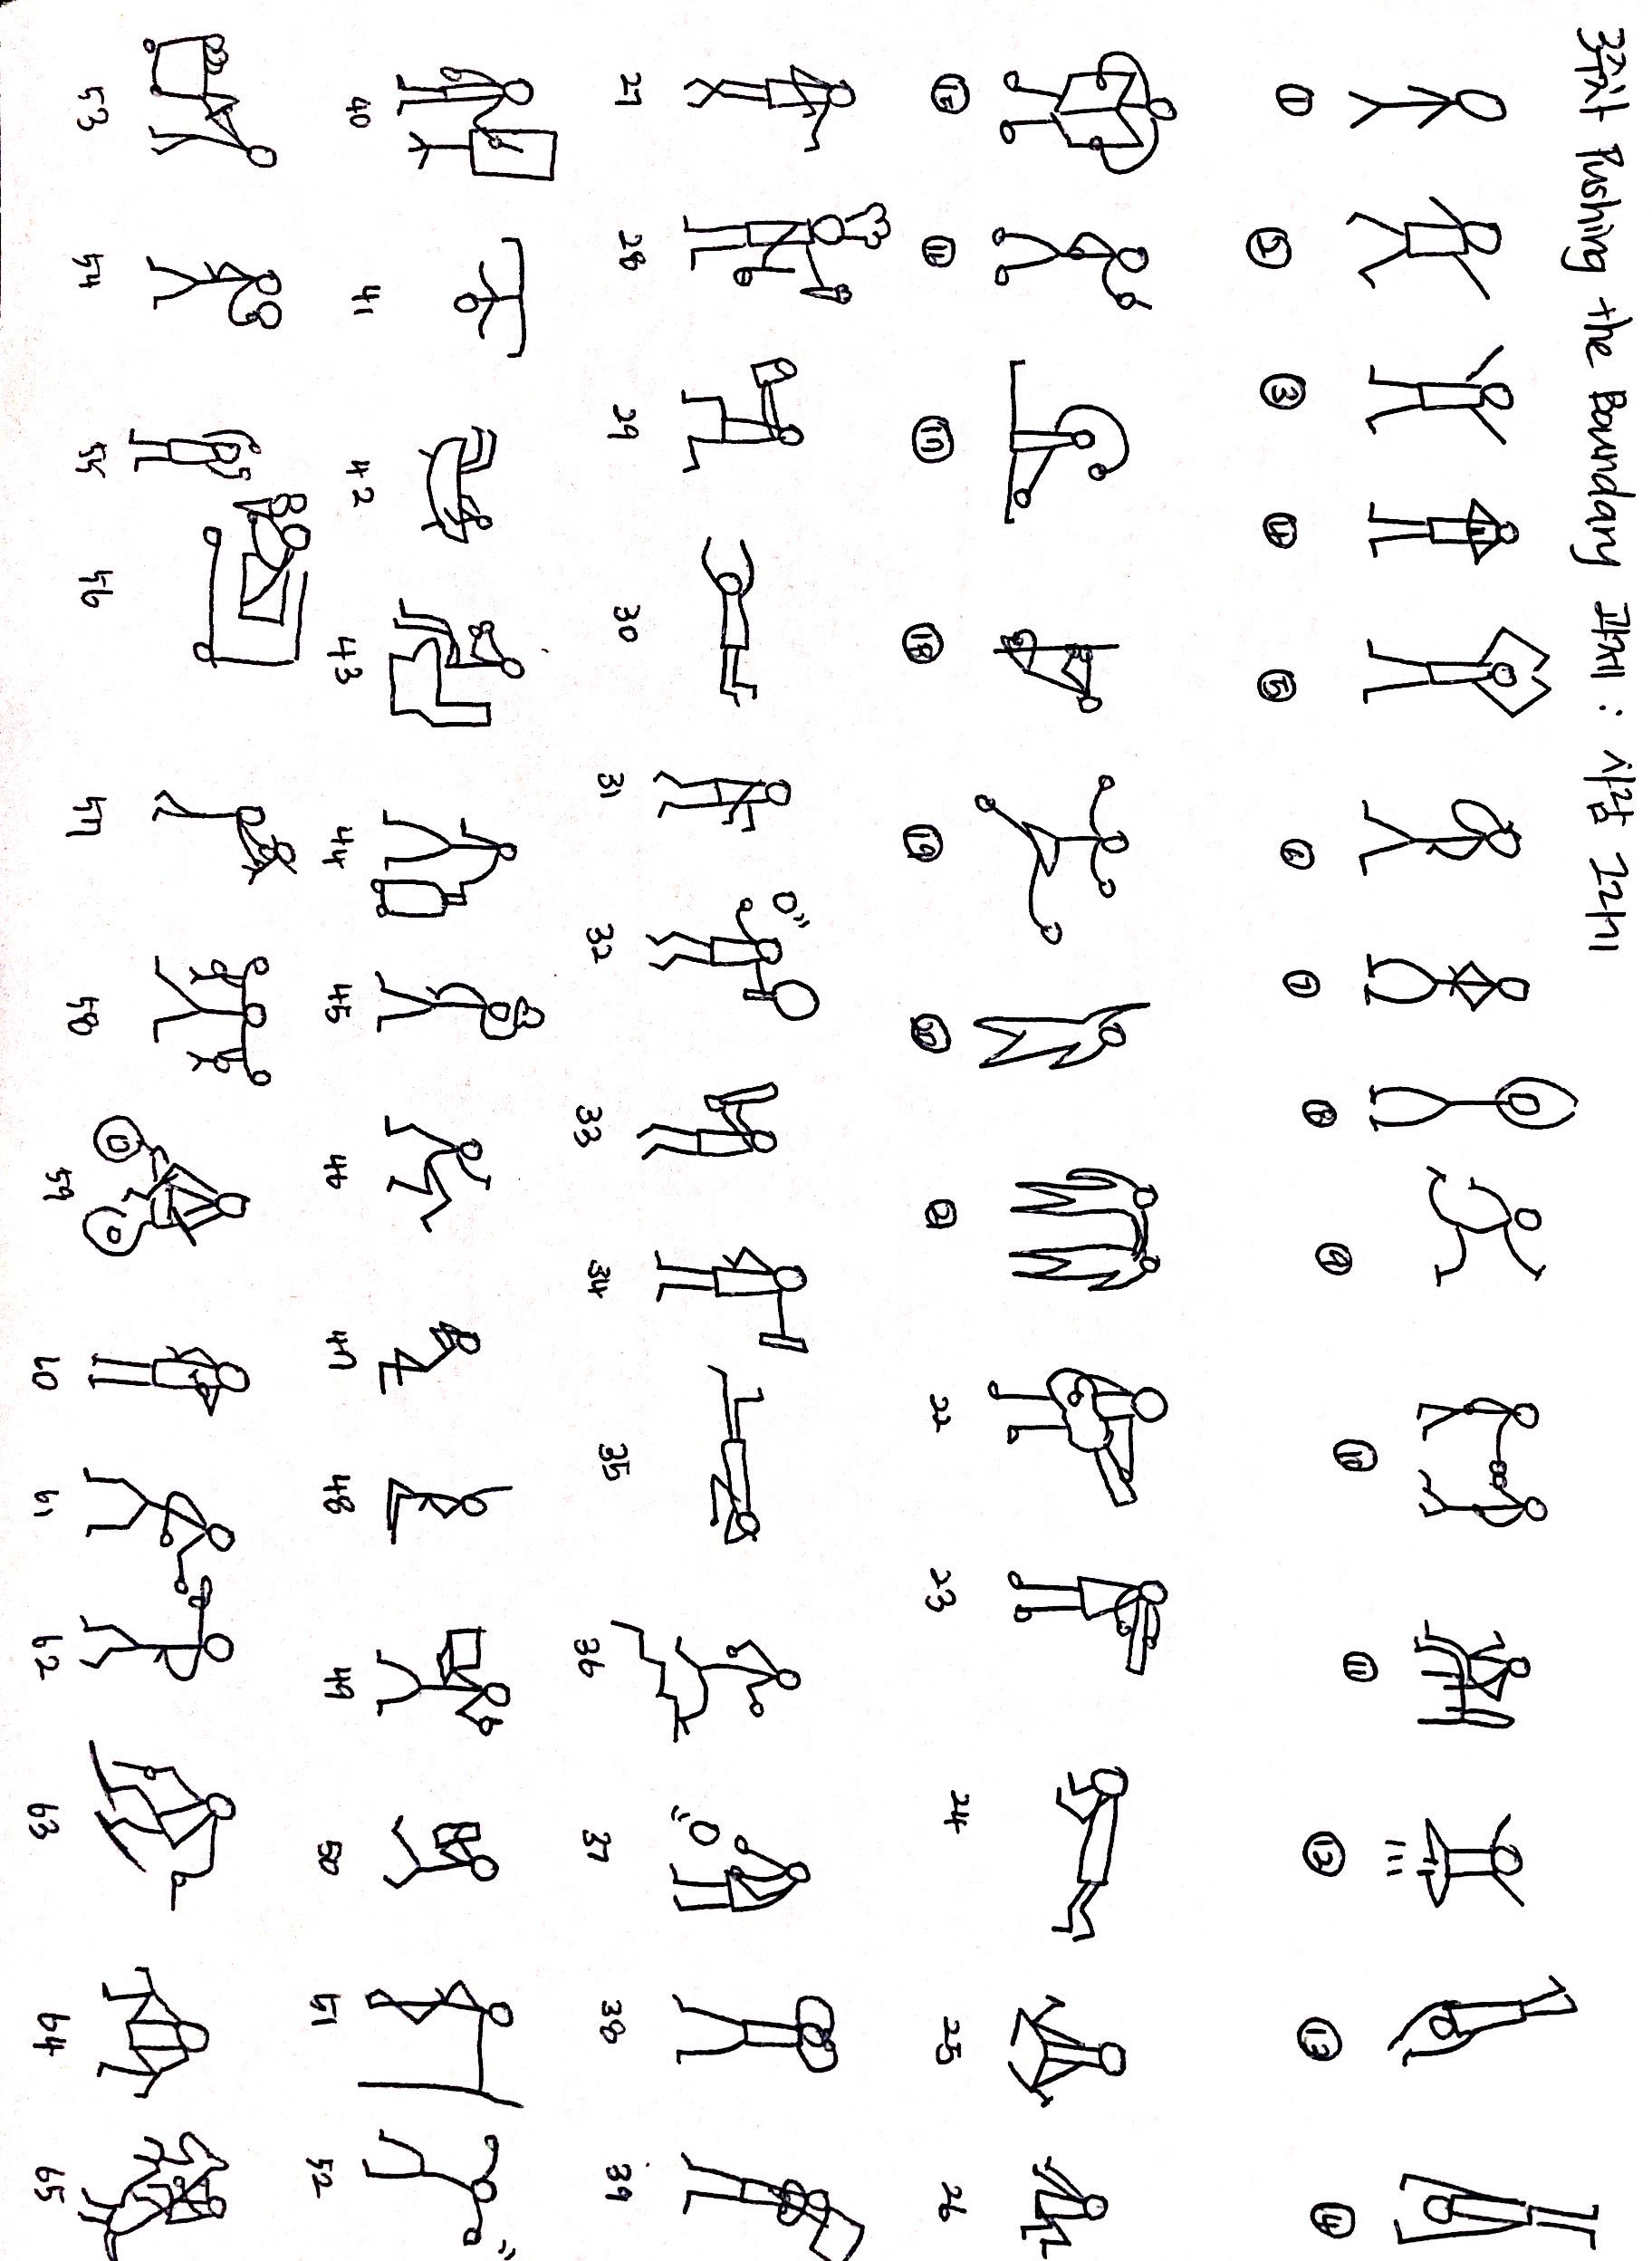 3주차 Pushing the Boundary 과제 : 사람 그리기
① ② ③ ④ ⑤ ⑥ ⑦ ⑧ ⑨ ⑩ ⑪ ⑫ ⑬ ⑭
⑮ ⑯ ⑰ ⑱ ⑲ ⑳ ㉑ 22 23 24 25 26
27 28 29 30 31 32 33 34 35 36 37 38 39
40 41 42 43 44 45 46 47 48 49 50 51 52
53 54 55 56 57 58 59 60 61 62 63 64 65